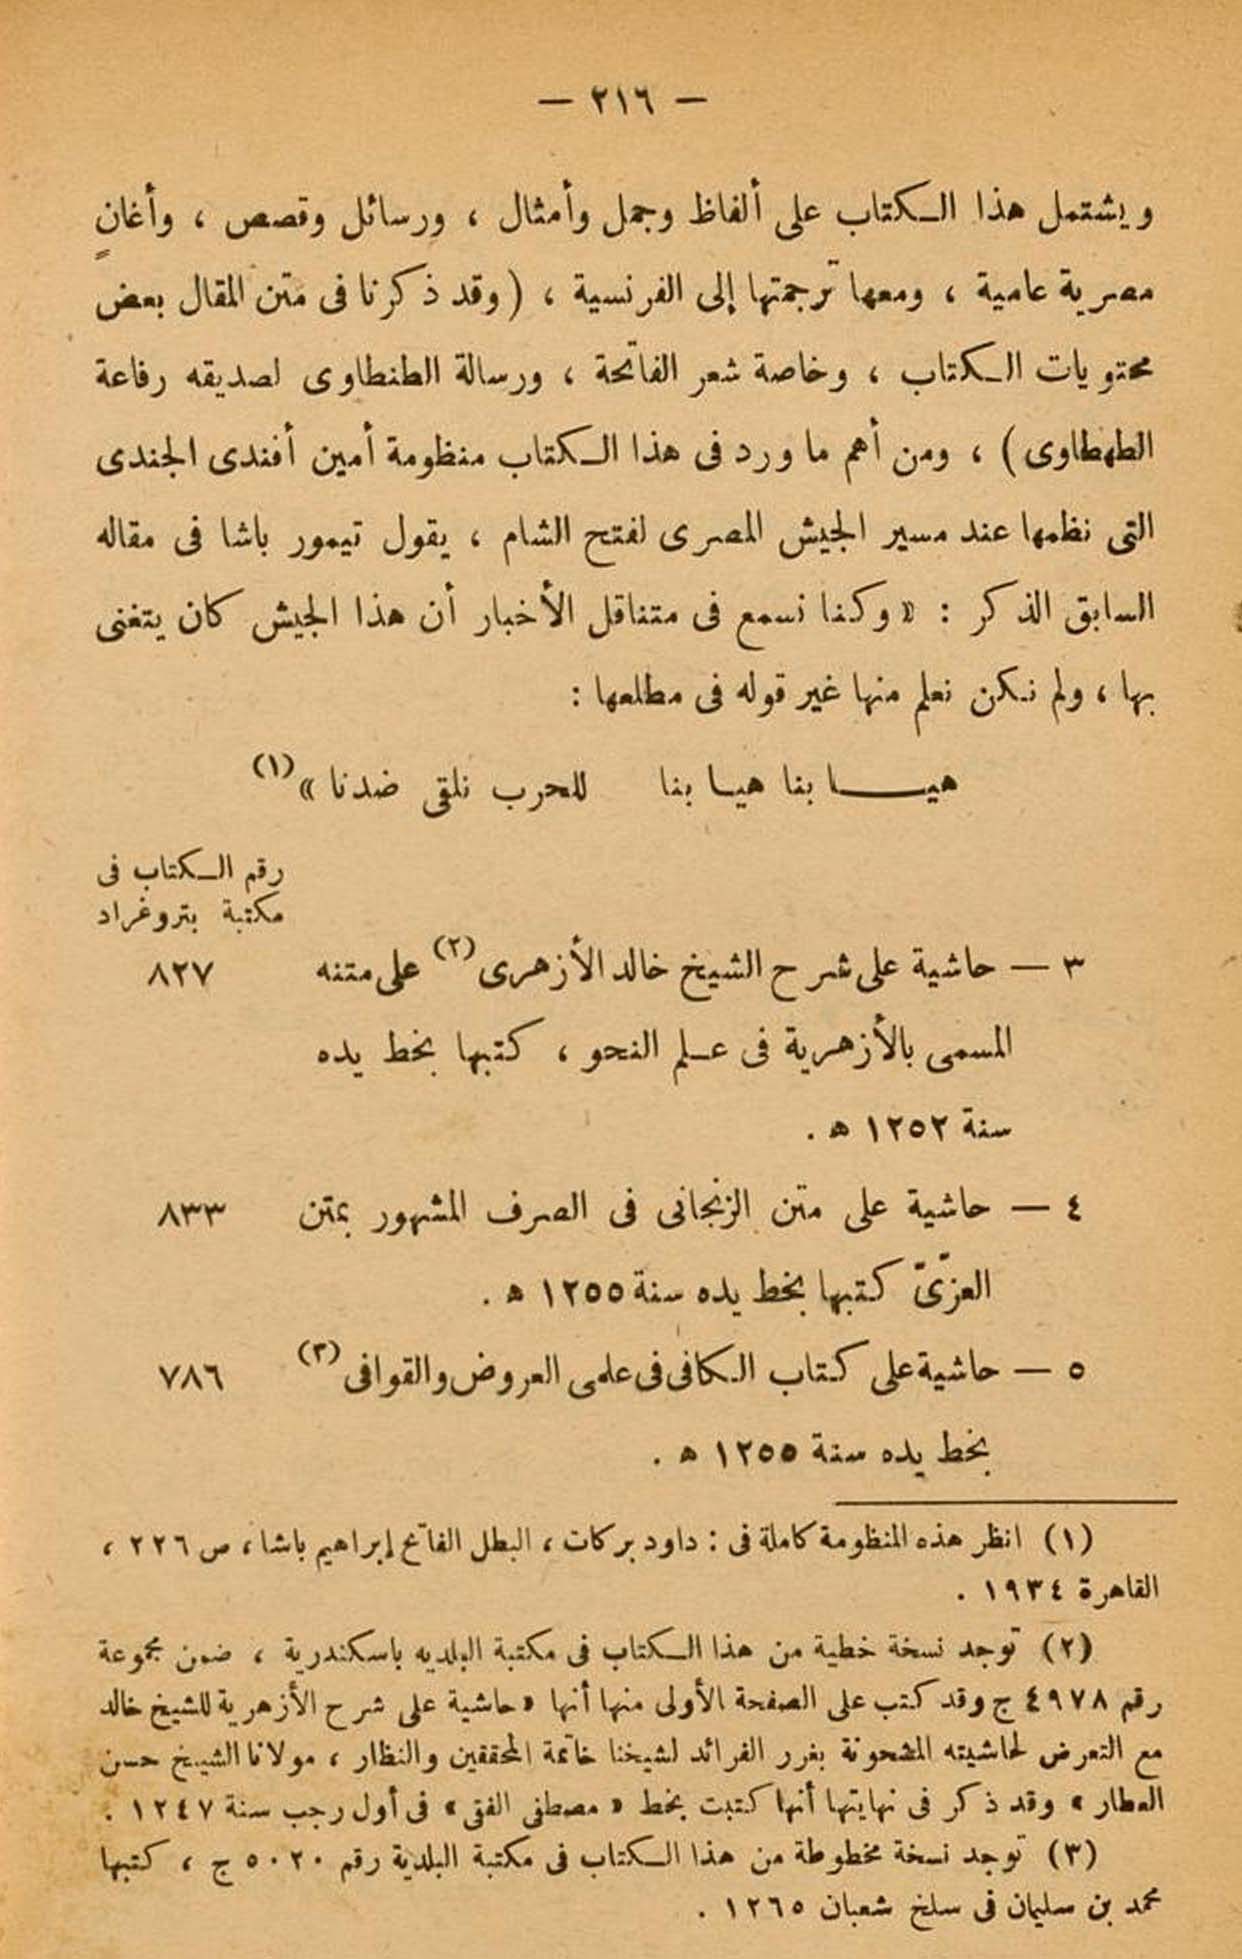 — ٢١٦ —
ويشتمل هذا الكتاب على ألفاظ وجمل وأمثال ، ورسائل وقصص ، وأغانٍ
مصرية عامية ، ومعها ترجمتها إلى الفرنسية ، (وقد ذكرنا فى متن المقال بعض
محتويات الكتاب ، وخاصة شعر الفاتحة ، ورسالة الطنطاوى لصديقه رفاعة
الطهطاوى) ، ومن أهم ما ورد فى هذا الكتاب منظومة أمين أفندى الجندى
التى نظمها عند مسير الجيش المصرى لفتح الشام ، يقول تيمور باشا فى مقاله
السابق الذكر : «وكنا نسمع فى متناقل الأخبار أن هذا الجيش كان يتغنى
بها ، ولم نكن نعلم منها غير قوله فى مطلعها :
هيـــا بنا هيـا بنا للحرب نلقى ضدنا» (١)
رقم الكتاب فى
مكتبة بتروغراد
٣ — حاشية على شرح الشيخ خالد الأزهرى (٢) على متنه ٨٢٧
المسمى بالأزهرية فى علم النحو ، كتبها بخط يده
سنة ١٢٥٢ ه .
٤ — حاشية على متن الزنجانى فى الصرف المشهور بمتن ٨٣٣
العزّىّ كتبها بخط يده سنة ١٢٥٥ ه .
٥ — حاشية على كتاب الكافى فى علمى العروض والقوافى (٣) ٧٨٦
بخط يده سنة ١٢٥٥ ه .
(١) انظر هذه المنظومة كاملة فى : داود بركات ، البطل الفاتح إبراهيم باشا ، ص ٢٢٦ ،
القاهرة ١٩٣٤ .
(٢) توجد نسخة خطية من هذا الكتاب فى مكتبة البلديه باسكندرية ، ضمن مجموعة
رقم ٤٩٧٨ ج وقد كتب على الصفحة الأولى منها أنها «حاشية على شرح الأزهرية للشيخ خالد
مع التعرض لحاشيته المشحونة بغرر الفرائد لشيخنا خاتمة المحققين والنظار ، مولانا الشيخ حسن
العطار» وقد ذكر فى نهايتها أنها كتبت بخط «مصطفى الفقى» فى أول رجب سنة ١٢٤٧ .
(٣) توجد نسخة مخطوطة من هذا الكتاب فى مكتبة البلدية رقم ٥٠٢٠ ج ، كتبها
محمد بن سليمان فى سلخ شعبان ١٢٦٥ .